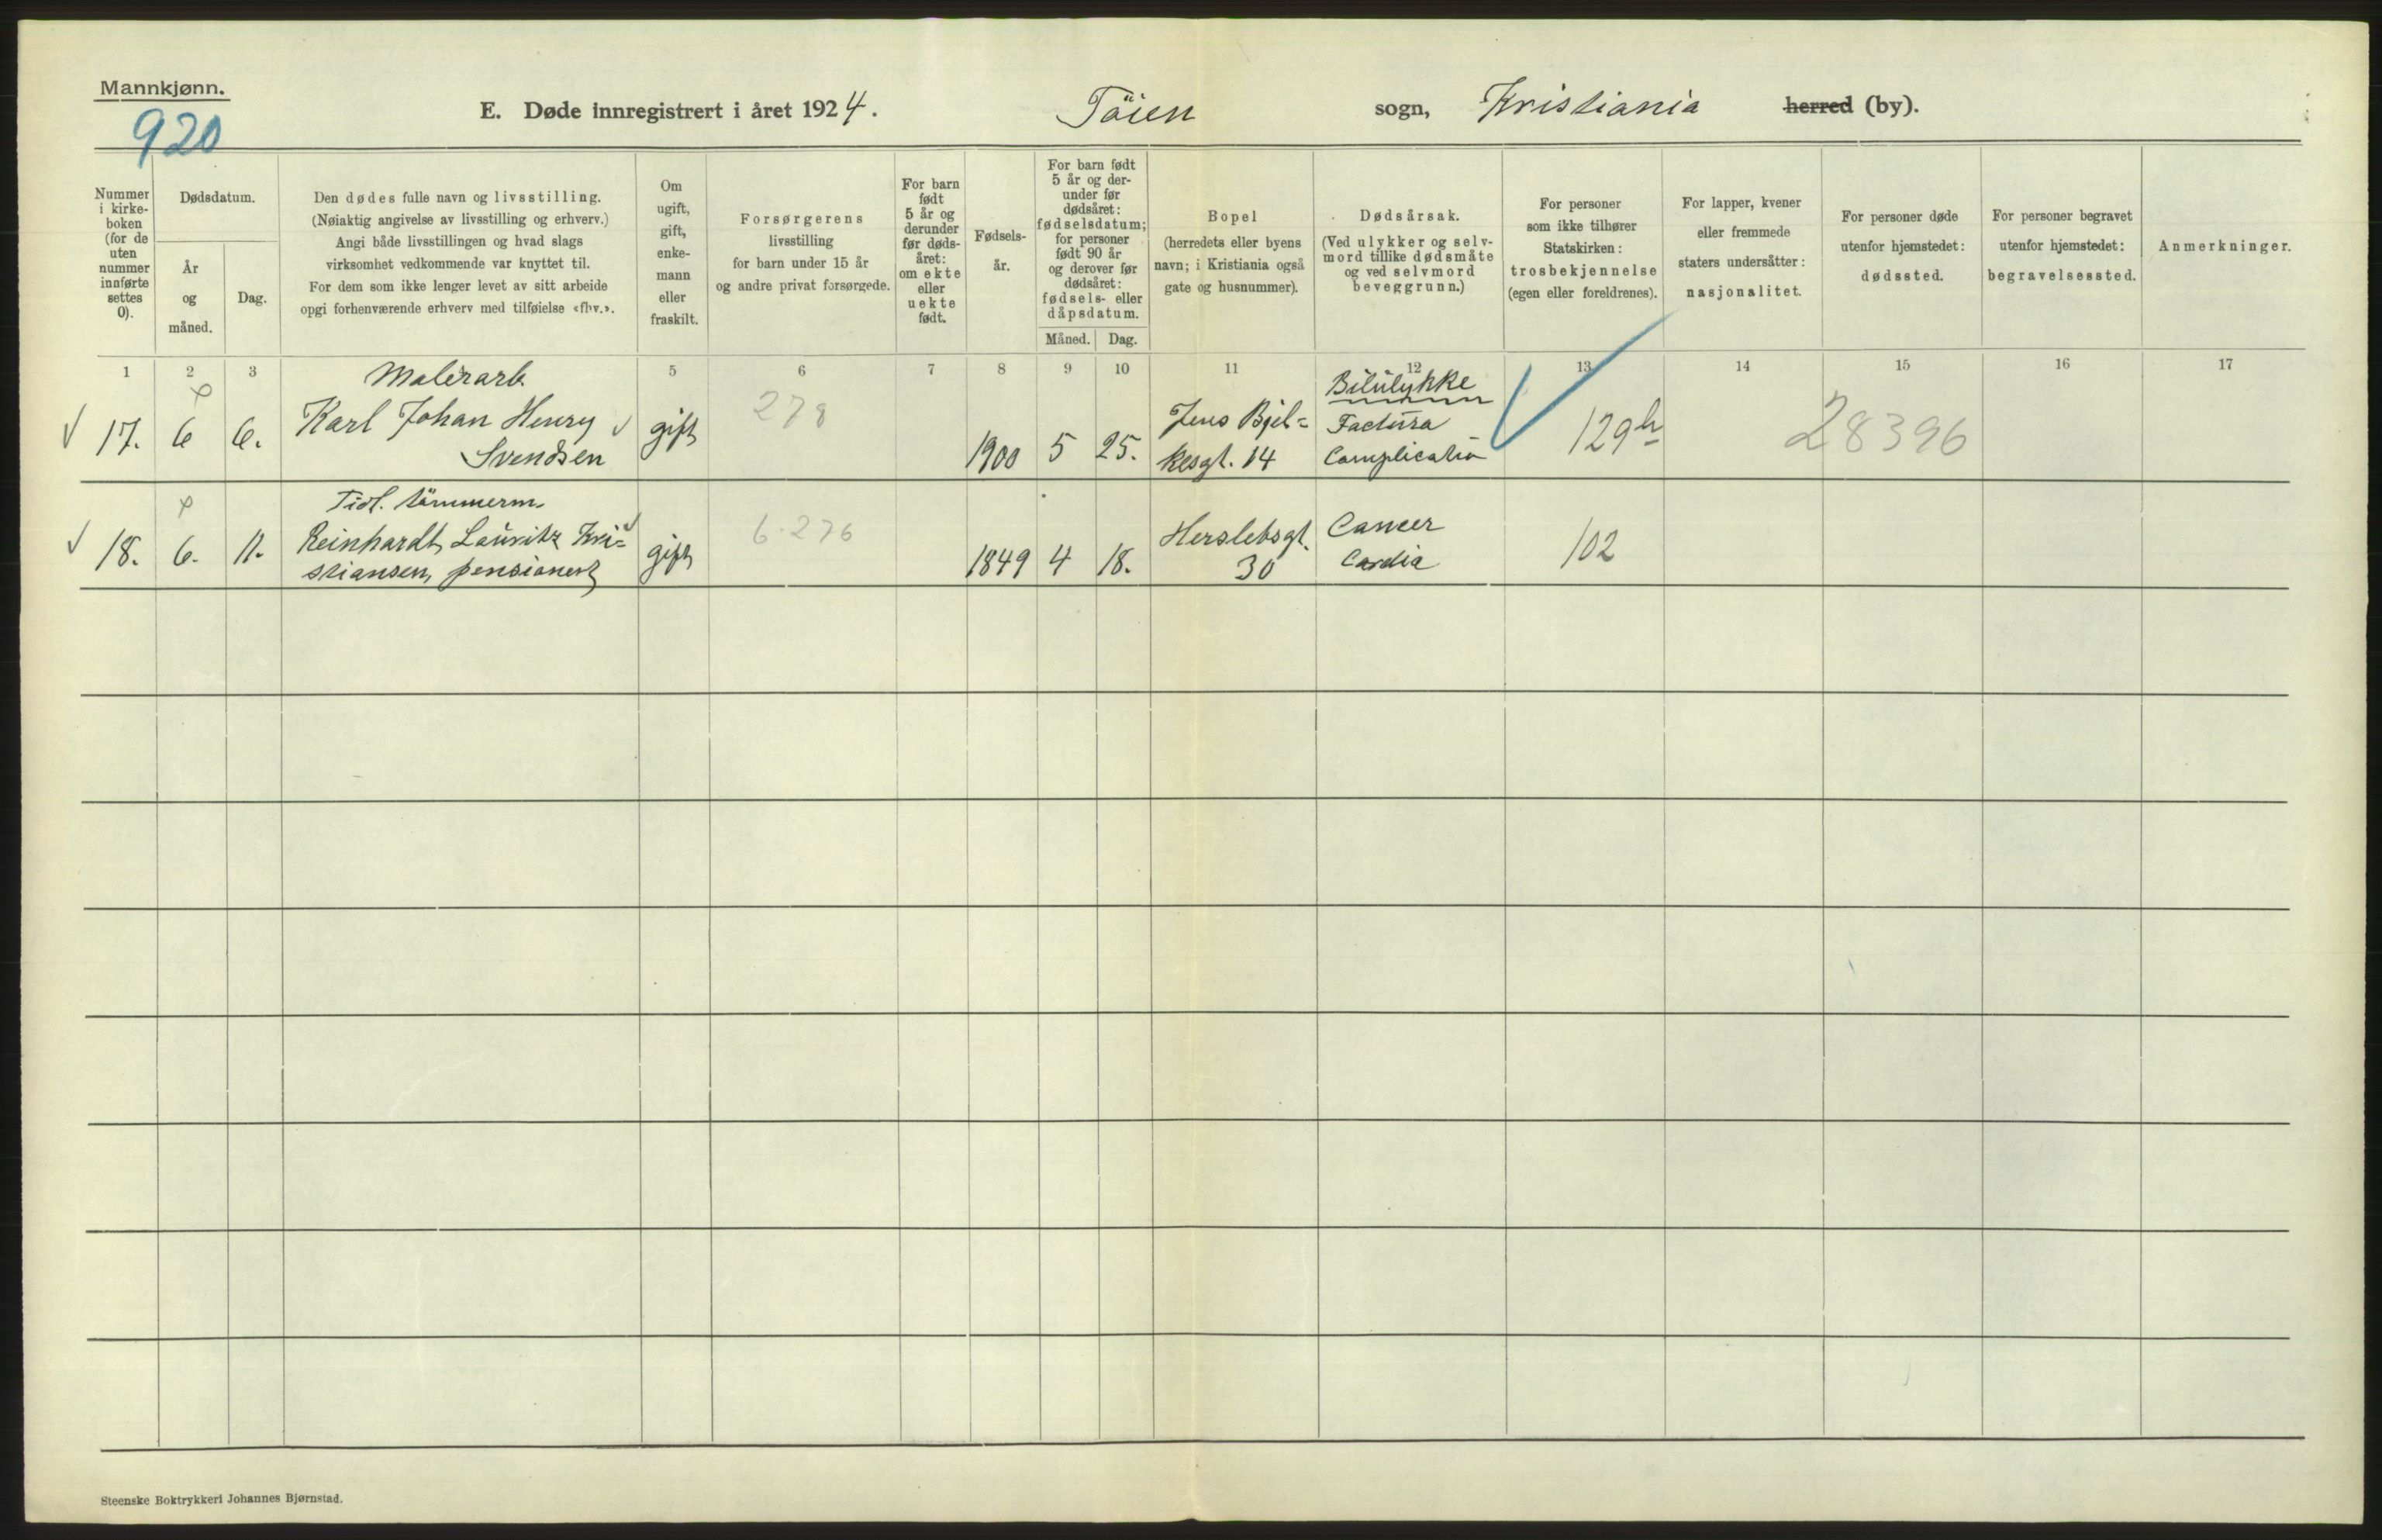 Mannkjønn.
920
E. Døde innregistrert i året 1924. Töien sogn, Kristiania herred (by).
Nummer
i kirke-
boken
(for de
uten
nummer
innførte
settes
0).
Dødsdatum.
År
og
måned.
Dag.
Den dødes fulle navn og livsstilling.
(Nøiaktig angivelse av livsstilling og erhverv.)
Angi både livsstillingen og hvad slags
virksomhet vedkommende var knyttet til.
For dem som ikke lenger levet av sitt arbeide
opgi forhenværende erhverv med tilføielse «fhv.».
Om
ugift,
gift,
enke-
mann
eller
fraskilt.
Forsørgerens
livsstilling
for barn under 15 år
og andre privat forsørgede.
For barn
født
5 år og
derunder
før døds-
året:
om ekte
eller
uekte
født.
Fødsels-
år.
For barn født
5 år og der-
under før
dødsåret:
fødselsdatum;
for personer
født 90 år
og derover før
dødsåret:
fødsels- eller
dåpsdatum.
Måned. Dag.
Bopel
(herredets eller byens
navn; i Kristiania også
gate og husnummer).
Dødsårsak.
(Ved ulykker og selv-
mord tillike dødsmåte
og ved selvmord
beveggrunn.)
For personer
som ikke tilhører
Statskirken:
trosbekjennelse
(egen eller foreldrenes).
For lapper, kvener
eller fremmede
staters undersåtter:
nasjonalitet.
For personer døde
utenfor hjemstedet:
dødssted.
For personer begravet
utenfor hjemstedet:
begravelsessted.
Anmerkninger.
1 2 3 5 6 7 8 9 10 11 12 13 14 15 16 17
Malerarb.
17. 6 6. Karl Johan Henry
Svendsen
gift
278
1900 5 25.
Jens Bjel-
kesgt. 14
Bilulykke
Factura
Complicatio
129h
28396
Tidl. tömmerm.
18. 6. 11. Reinhardt Lauritz Kri-
stiansen, pensionert
gift
6-276
1849 4 18.
Herslebsgt.
30
Cancer
Cardia
102
Steenske Boktrykkeri Johannes Bjørnstad.